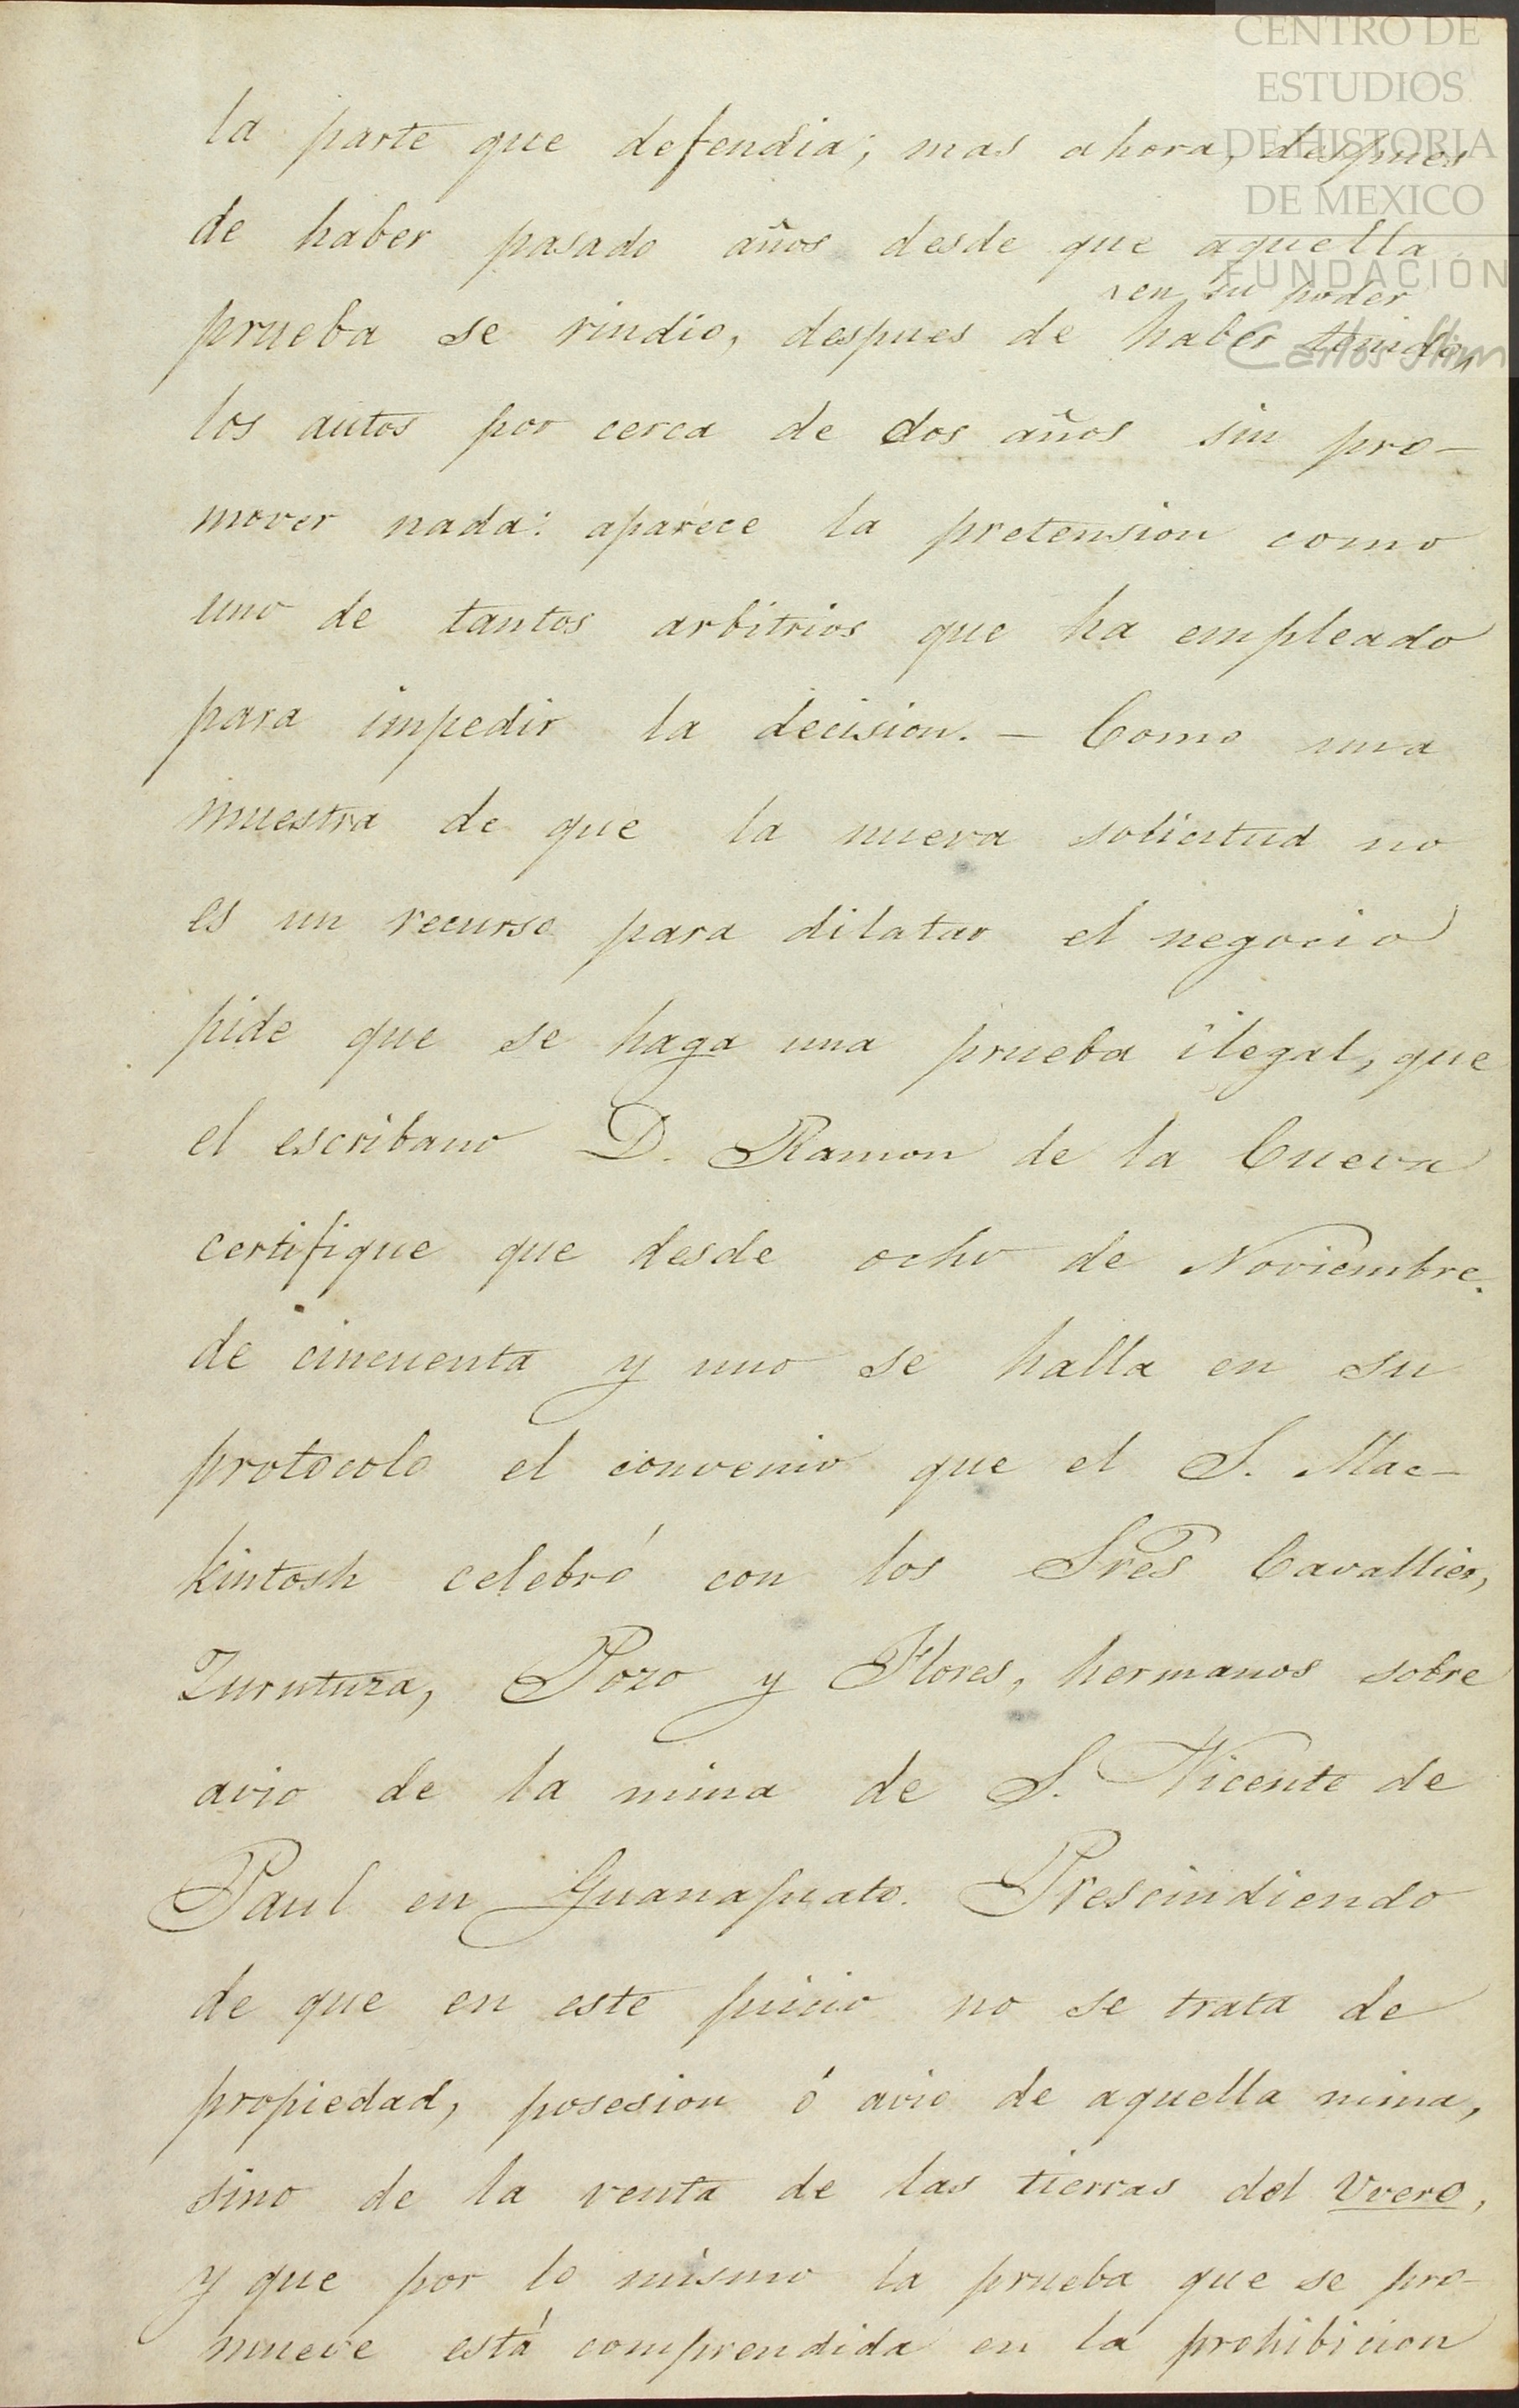 CENTRO DE
ESTUDIOS
DE HISTORIA
DE MEXICO
FUNDACIÓN
Carlos Slim
la parte que defendia; mas ahora, despues
de haber pasado años desde que aquella
prueba se rindio, despues de haber tenido
en su poder
los autos por cerca de dos años sin pro-
mover nada: aparece la pretension como
uno de tantos arbitrios que ha empleado
para impedir la decision. — Como una
muestra de que la nueva solicitud no
es un recurso para dilatar el negocio
pide que se haga una prueba ilegal, que
el escribano D. Ramon de la Cueva
certifique que desde ocho de Noviembre.
de cincuenta y uno se halla en su
protocolo el convenio que el S. Mac-
kintosh celebró con los Sres Cavallier,
Zurutuza, Pozo y Flores, hermanos sobre
avio de la mina de S. Vicente de
Paul en Guanajuato. Prescindiendo
de que en este juicio no se trata de
propiedad, posesion ó avio de aquella mina,
sino de la venta de las tierras del Uvero,
y que por lo mismo la prueba que se pro-
mueve está comprendida en la prohibicion